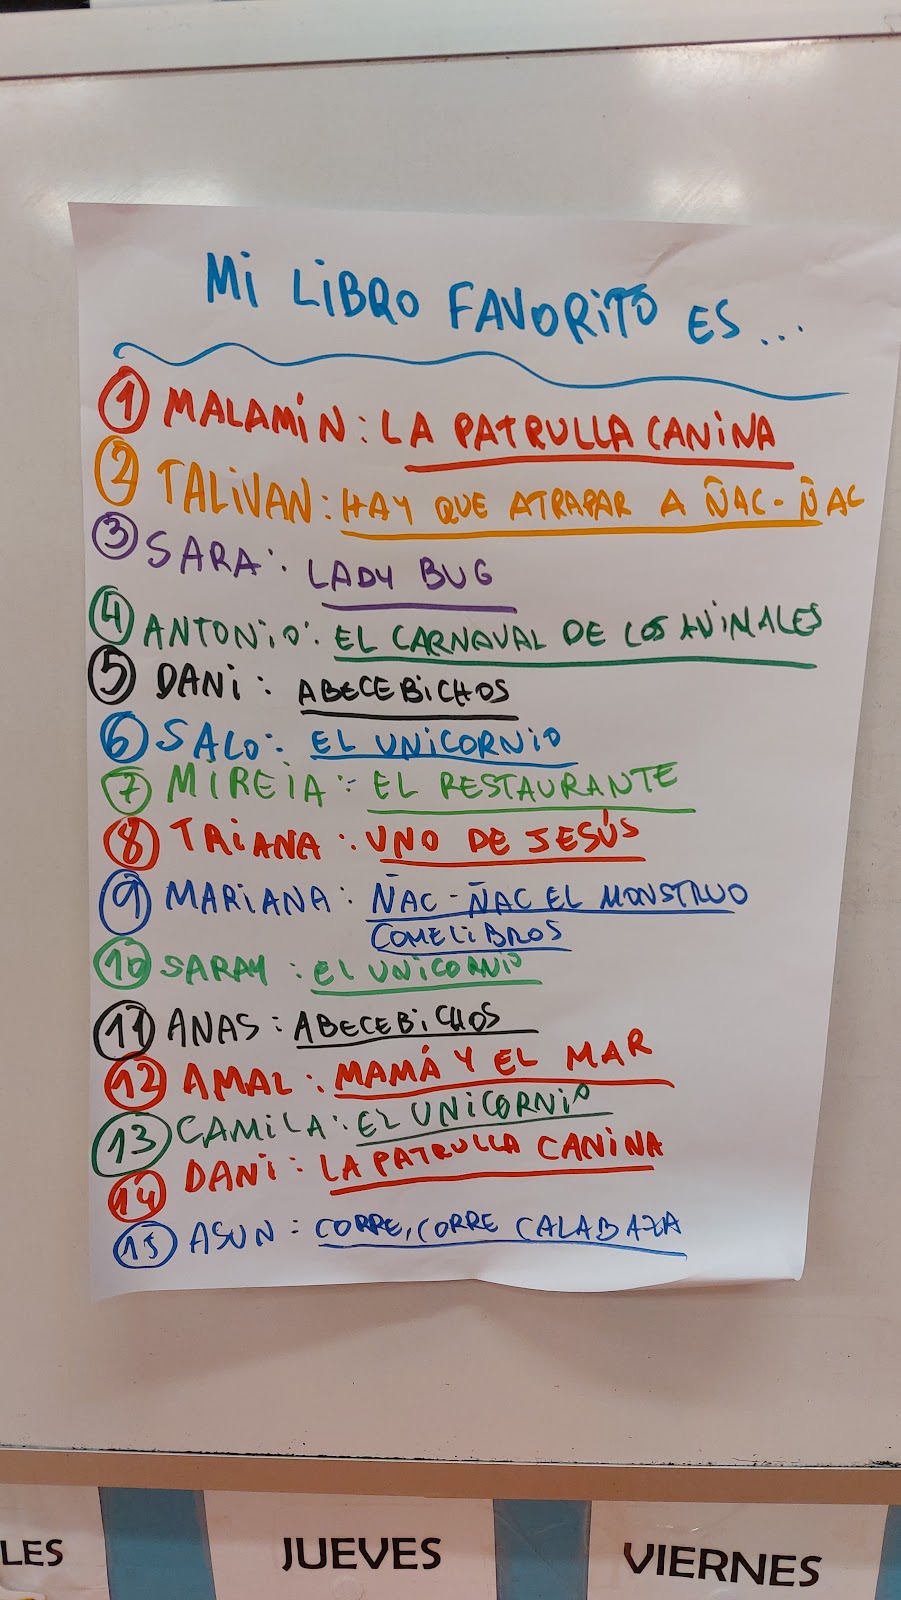 Mi LiBRO FAVORiTO ES...
1 MALAMiN: LA PATRULLA CANiNA
2 TALiVAN: HAY QUE ATRAPAR A ÑAC-ÑAC
3 SARA: LADY BUG
4 ANTONiO: EL CARNAVAL DE LOS ANiMALES
5 DANi: ABECEBiCHOS
6 SALO: EL UNiCORNiO
7 MiREiA: EL RESTAURANTE
8 TRiANA: UNO DE JESÚS
9 MARiANA: ÑAC-ÑAC EL MONSTRUO
COMELiBROS
10 SARAY: EL UNiCORNiO
11 ANAS: ABECEBiCHOS
12 AMAL: MAMÁ Y EL MAR
13 CAMiLA: EL UNiCORNiO
14 DANi: LA PATRULLA CANiNA
15 ASUN: CORRE, CORRE CALABAZA
LES JUEVES VIERNES